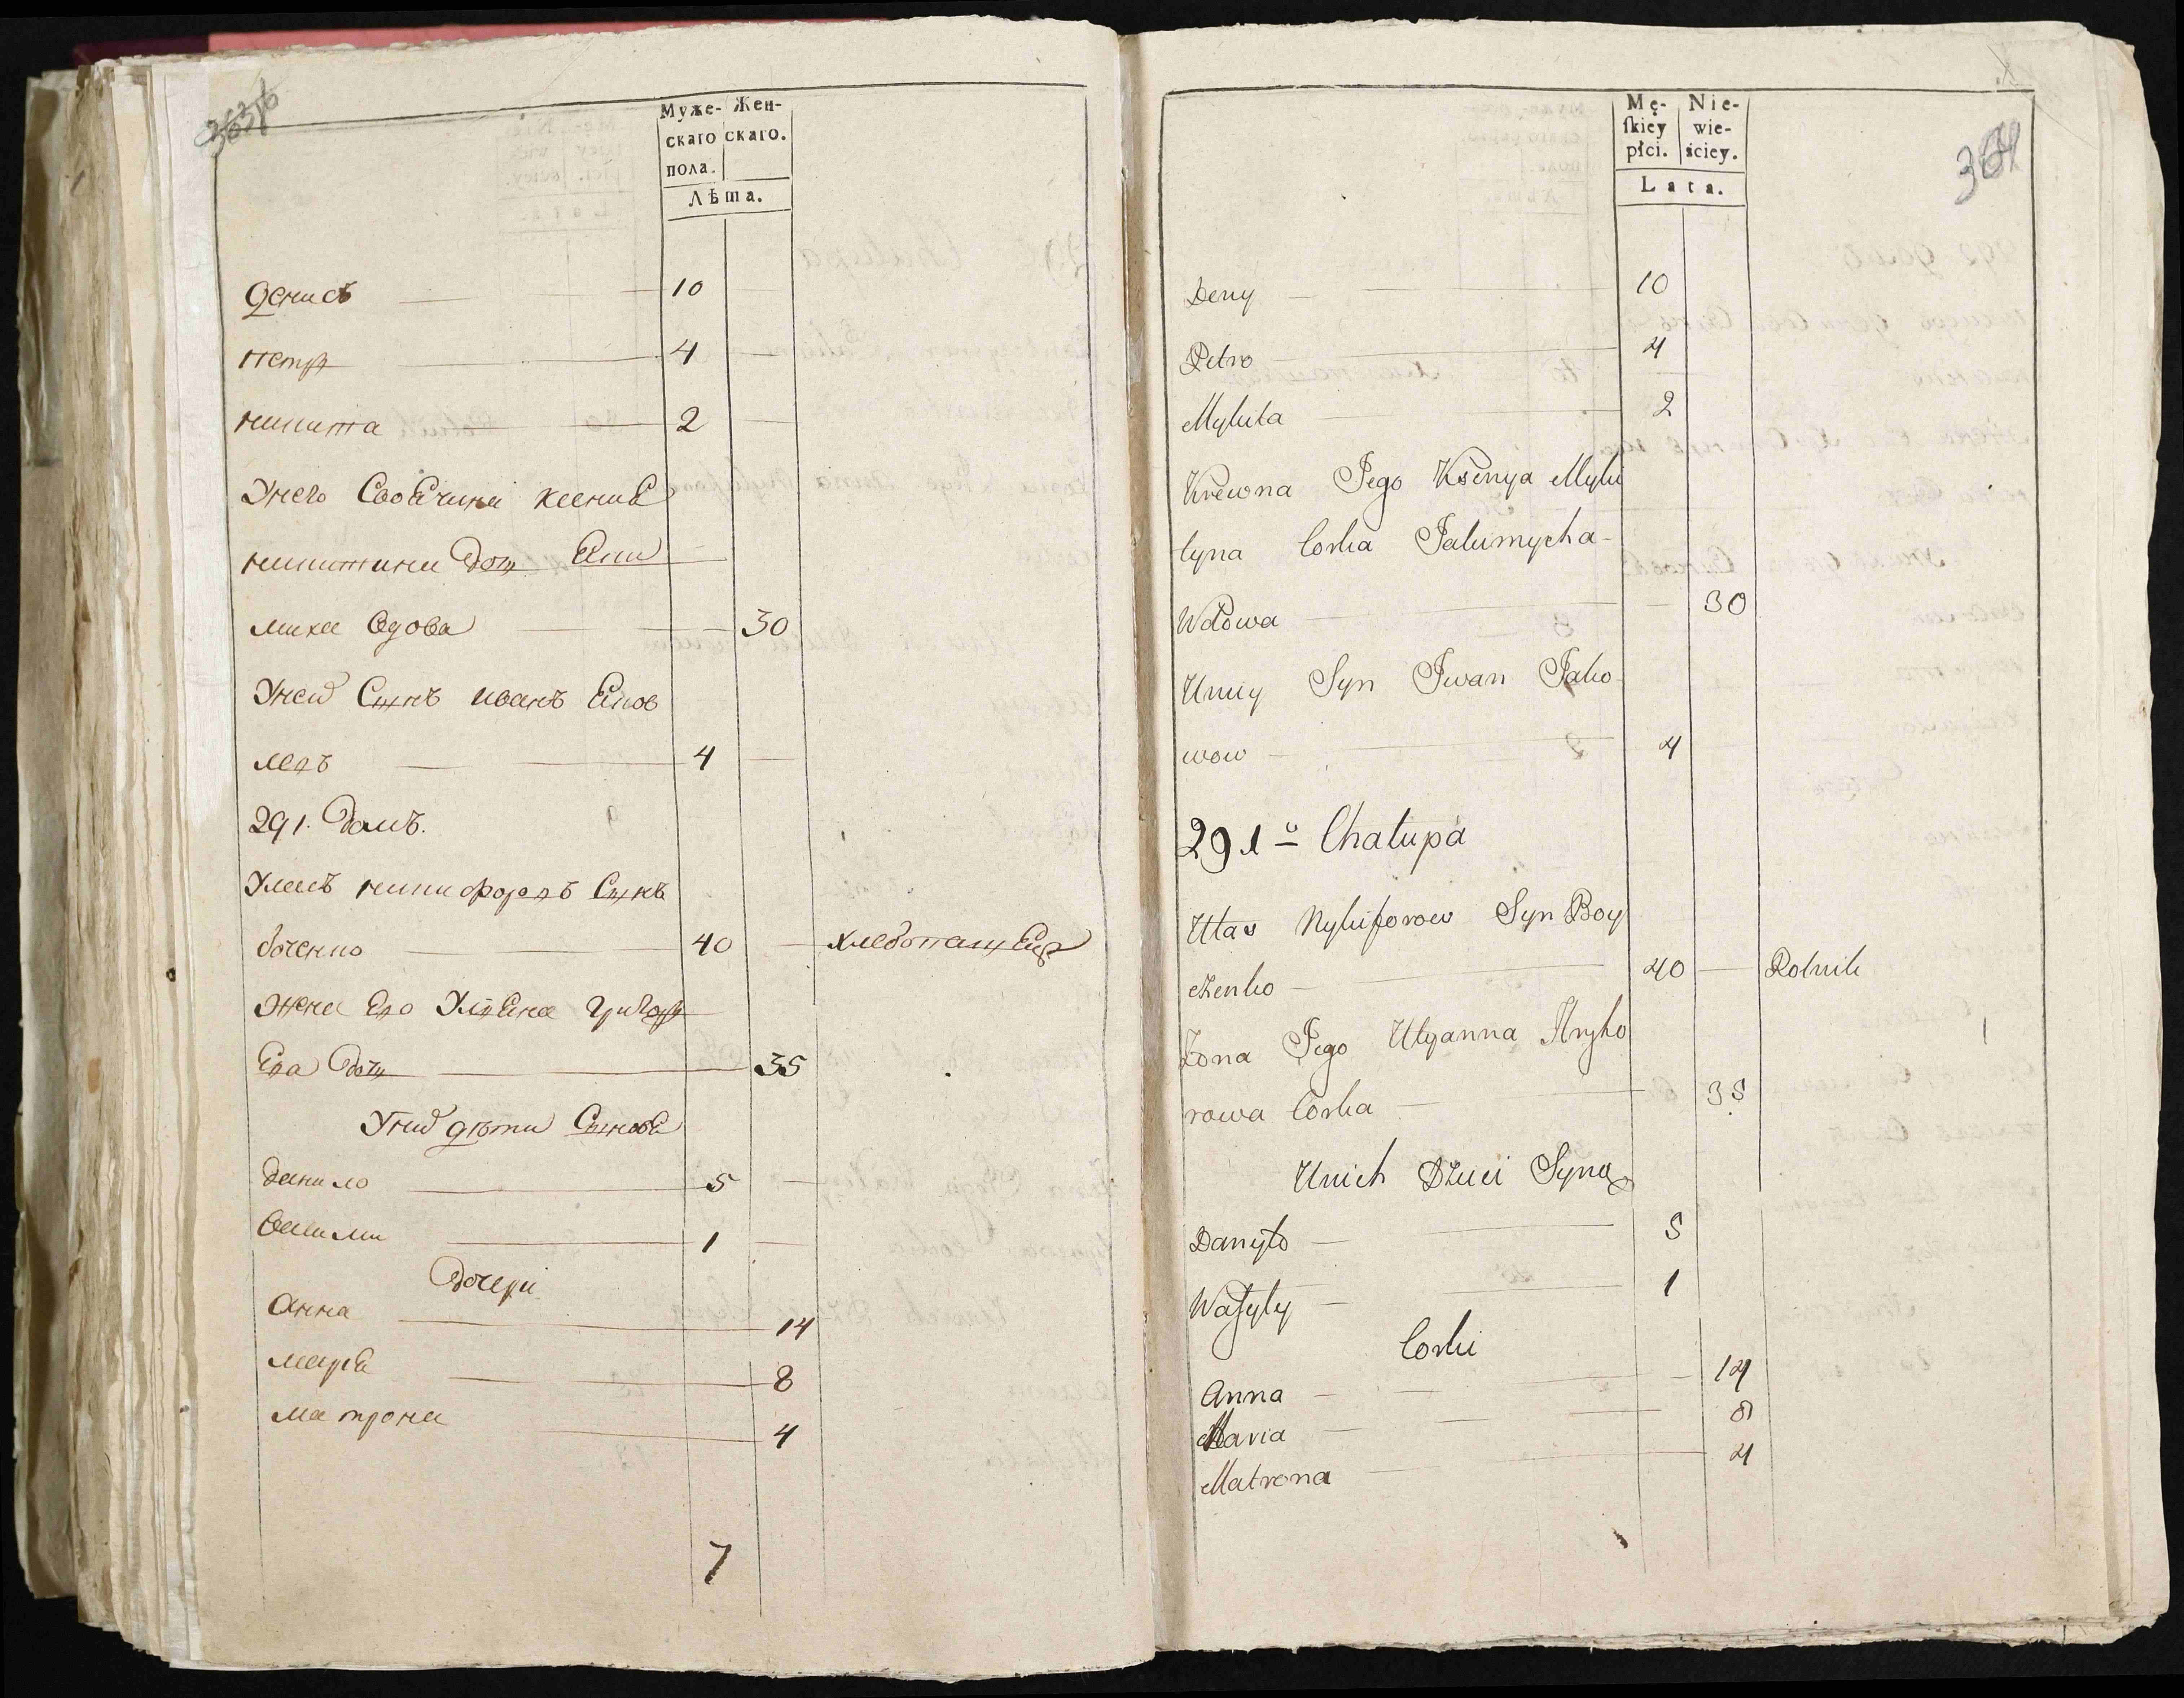 Муже- Жен-
скаго скаго.
пола.
Лѣта.
Денисъ 10
петръ 4
никита 2
Унего Своячина ксения
никитина дочь Яки
миха вдова 30
Унея Сынъ иванъ Яков
левъ 4
291. Домъ.
Уласъ никифоровъ Сынъ
боченко 40 хлебопашецъ
жена Его Ульяна Григорь
ева дочь 35
Уних дѣти Сыновья
данило 5
василий 1
дочери
Анна 14
марья 8
матрона 4
7
364
Mę- Nie-
ſkiey wie-
płci. ściey.
Lata.
Deny 10
Petro 4
Mykita 2
Krewna Jego Ksenya Myki
tyna Corka Jakimycha-
Wdowa 30
Uniey Syn Iwan Jako-
wow 4
291a Chałupa
Ułas Nykiforow Syn Boy
czenko 40 Rolnik
Żona Jego Ulyanna Hryho
rowa Corka 35
Unich Dzieci Syny
Danyło 5
Waſyly 1
Corki
Anna 14
Maria 8
Matrona 4